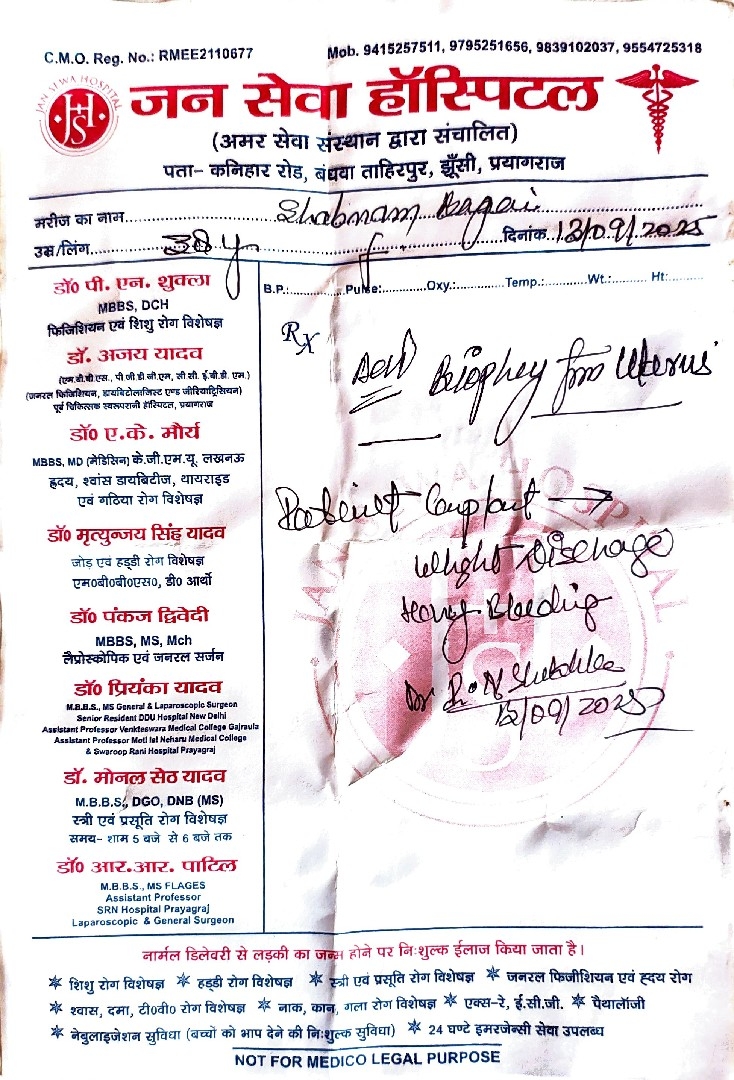 C.M.O. Reg. No.: RMEE2110677
Mob. 9415257511, 9795251656, 9839102037, 9554725318
JAN SEWA HOSPITAL
JHS
जन सेवा हॉस्पिटल
(अमर सेवा संस्थान द्वारा संचालित)
पता- कनिहार रोड, बंधवा ताहिरपुर, झूँसी, प्रयागराज
मरीज का नाम Shabnam
उम्र/लिंग 38y f दिनांक 13/09/2025
डॉ० पी. एन. शुक्ला
MBBS, DCH
फिजिशियन एवं शिशु रोग विशेषज्ञ
डॉ. अजय यादव
(एम.बी.बी.एस., पी.जी.डी.जी.एम, सी.सी. ई.बी.डी. एम.)
(जनरल फिजिशियन, डायबिटोलाजिस्ट एण्ड जीरियाट्रिसियन)
पूर्व चिकित्सक स्वरूपरानी हॉस्पिटल, प्रयागराज
डॉ० ए.के. मौर्य
MBBS, MD (मेडिसिन) के.जी.एम.यू. लखनऊ
हृदय, श्वांस डायबिटीज, थायराइड
एवं गठिया रोग विशेषज्ञ
डॉ० मृत्युन्जय सिंह यादव
जोड़ एवं हड्डी रोग विशेषज्ञ
एम०बी०बी०एस०, डी० आर्थो
डॉ० पंकज द्विवेदी
MBBS, MS, Mch
लैप्रोस्कोपिक एवं जनरल सर्जन
डॉ० प्रियंका यादव
M.B.B.S., MS General & Laparoscopic Surgeon
Senior Resident DDU Hospital New Delhi
Assistant Professor Venkteswara Medical College Gajraula
Assistant Professor Moti lal Neharu Medical College
& Swaroop Rani Hospital Prayagraj
डॉ. मोनल सेठ यादव
M.B.B.S., DGO, DNB (MS)
स्त्री एवं प्रसूति रोग विशेषज्ञ
समय- शाम 5 बजे से 6 बजे तक
डॉ० आर.आर. पाटिल
M.B.B.S., MS FLAGES
Assistant Professor
SRN Hospital Prayagraj
Laparoscopic & General Surgeon
B.P.: Pulse: Oxy.: Temp.: Wt.: Ht:
Rx
from Uterus
Patient
Dischage
Bleeding
Dr P. N Shukla
13/09/2025
नार्मल डिलेवरी से लड़की का जन्म होने पर निःशुल्क ईलाज किया जाता है।
शिशु रोग विशेषज्ञ हड्डी रोग विशेषज्ञ स्त्री एवं प्रसूति रोग विशेषज्ञ जनरल फिजीशियन एवं हृदय रोग
श्वास, दमा, टी०वी० रोग विशेषज्ञ नाक, कान, गला रोग विशेषज्ञ एक्स-रे, ई.सी.जी. पैथालॉजी
नेबुलाइजेशन सुविधा (बच्चों को भाप देने की निःशुल्क सुविधा) 24 घण्टे इमरजेन्सी सेवा उपलब्ध
NOT FOR MEDICO LEGAL PURPOSE